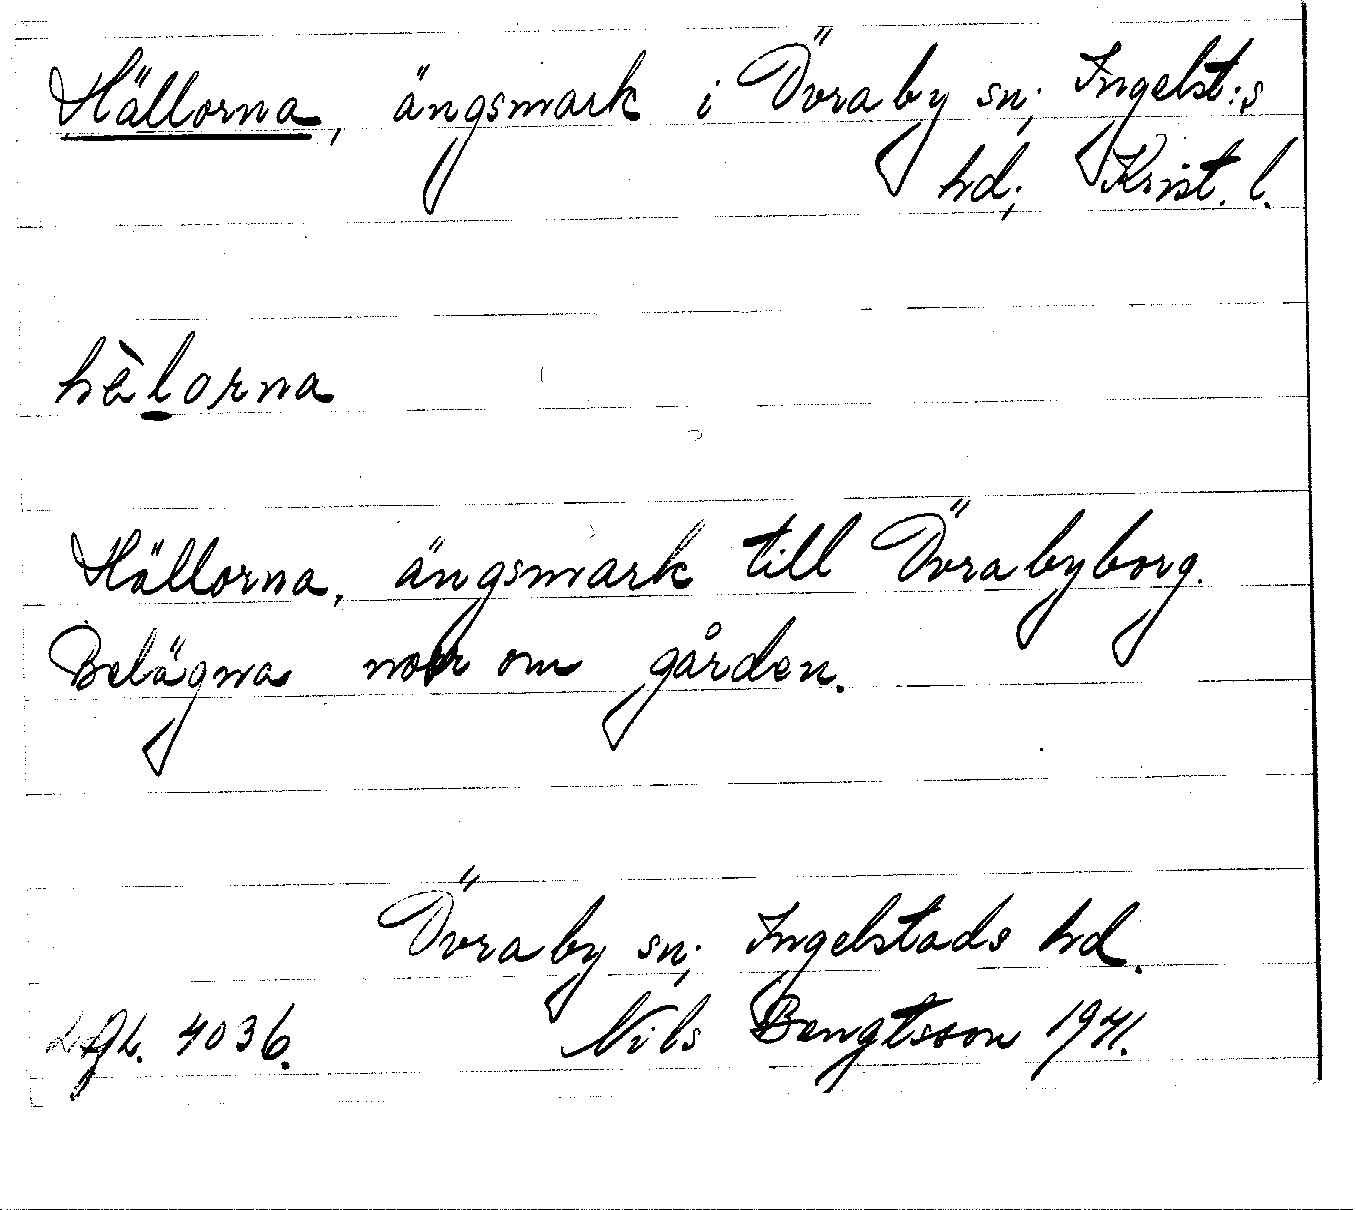 Hällorna, ängsmark i Övraby sn; Ingelst:s
hd; Krist. l.
hèlorna
Hällorna, ängsmark till Övrabyborg.
Belägna norr om gården.
Övraby sn; Ingelstads hd.
4036. Nils Bengtsson 1941.